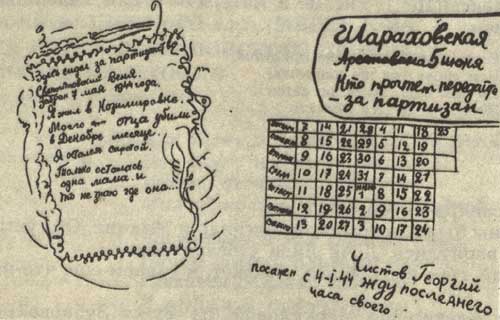 Здесь сидел за партизан
Веня.
Забран 7 мая 1944 года.
Я жил в Козилировке.
Моего отца убили
в Декабре месяце.
Я остался сиротой.
Только осталась
одна мама. и
то не знаю где она...
Шараховская
Арестована 5 июня
Кто прочтет передайте
– за партизан
7 14 21 28 4 11 18 25
8 15 22 29 5 12 19
9 16 23 30 6 13 20
10 17 24 31 7 14 27
11 18 25 1 8 15 22
12 19 26 2 9 16 23
13 20 27 3 10 17 24
Чистов Георгий
посажен с 4-I-44 жду последнего
часа своего